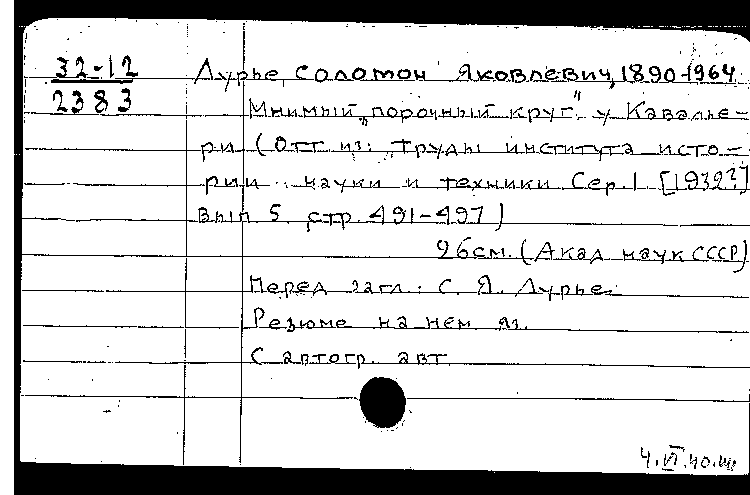 32-12
2383
Лурье, Соломон Яковлевич, 1890-1964.
Мнимый „порочный круг" у Кавалье-
ри (Отт. из: Труды института исто-
рии науки и техники. Сер. I [1932?]
Вып 5. стр. 491-497)
26см. (Акад наук СССР)
Перед загл.: С. Я. Лурье.
Резюме на нем. яз.
С автогр. авт.
4.VI.40.